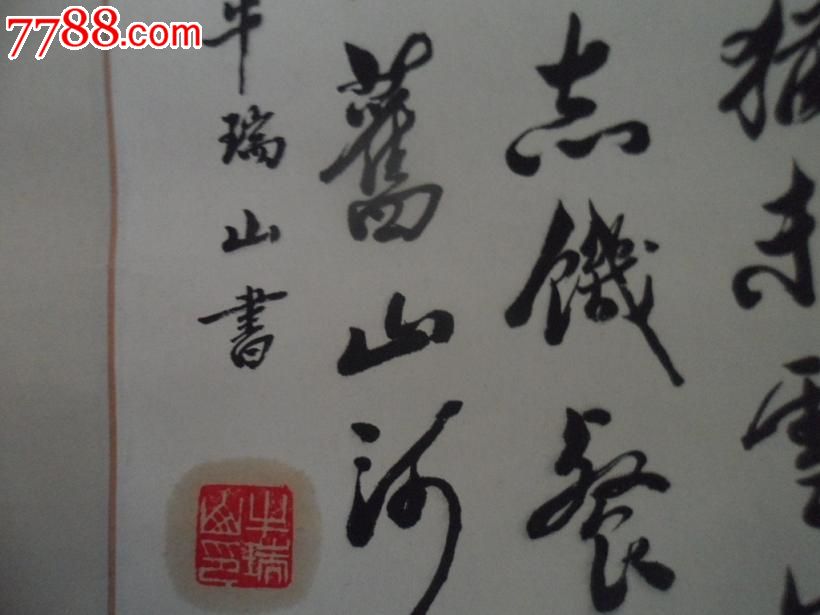 7788.com
猶未雪
志饑餐
舊山河
牛瑞山書
牛瑞山印